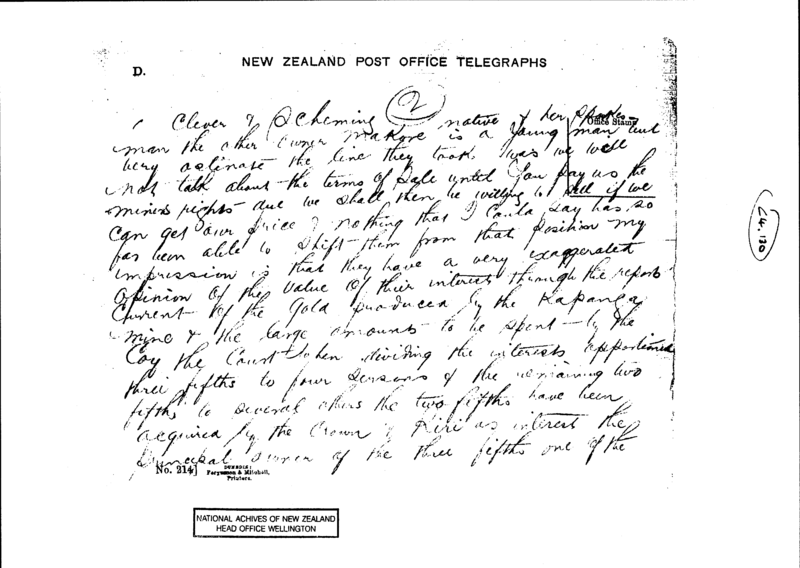 NEW ZEALAND POST OFFICE TELEGRAPHS
D.
2
Office Stamp
Clever & Scheming native & her Spokes-
man the other owner Makore is a Young man but
very ostinate the line they took was we will
not talk about the terms of Sale until you pay us the
miners rights due we shall then be willing to sell if we
can get our price & nothing that I could say has so
far been able to shift them from that position my
impression is that they have a very exaggerated
opinion of the value of their interest through the reports
Current of the Gold produced by the Kapanga
mine & the large amounts to be spent by the
Coy the Court when dividing the interests apportioned
three fifths to four persons & the remaining two
fifths to several others the two fifths have been
acquired by the Crown & Kiri us interest the
principal owner of the three fifths one of the
No. 214]
DUNEDIN:
Fergusson & Mitchell,
Printers.
C4.120
NATIONAL ACHIVES OF NEW ZEALAND
HEAD OFFICE WELLINGTON